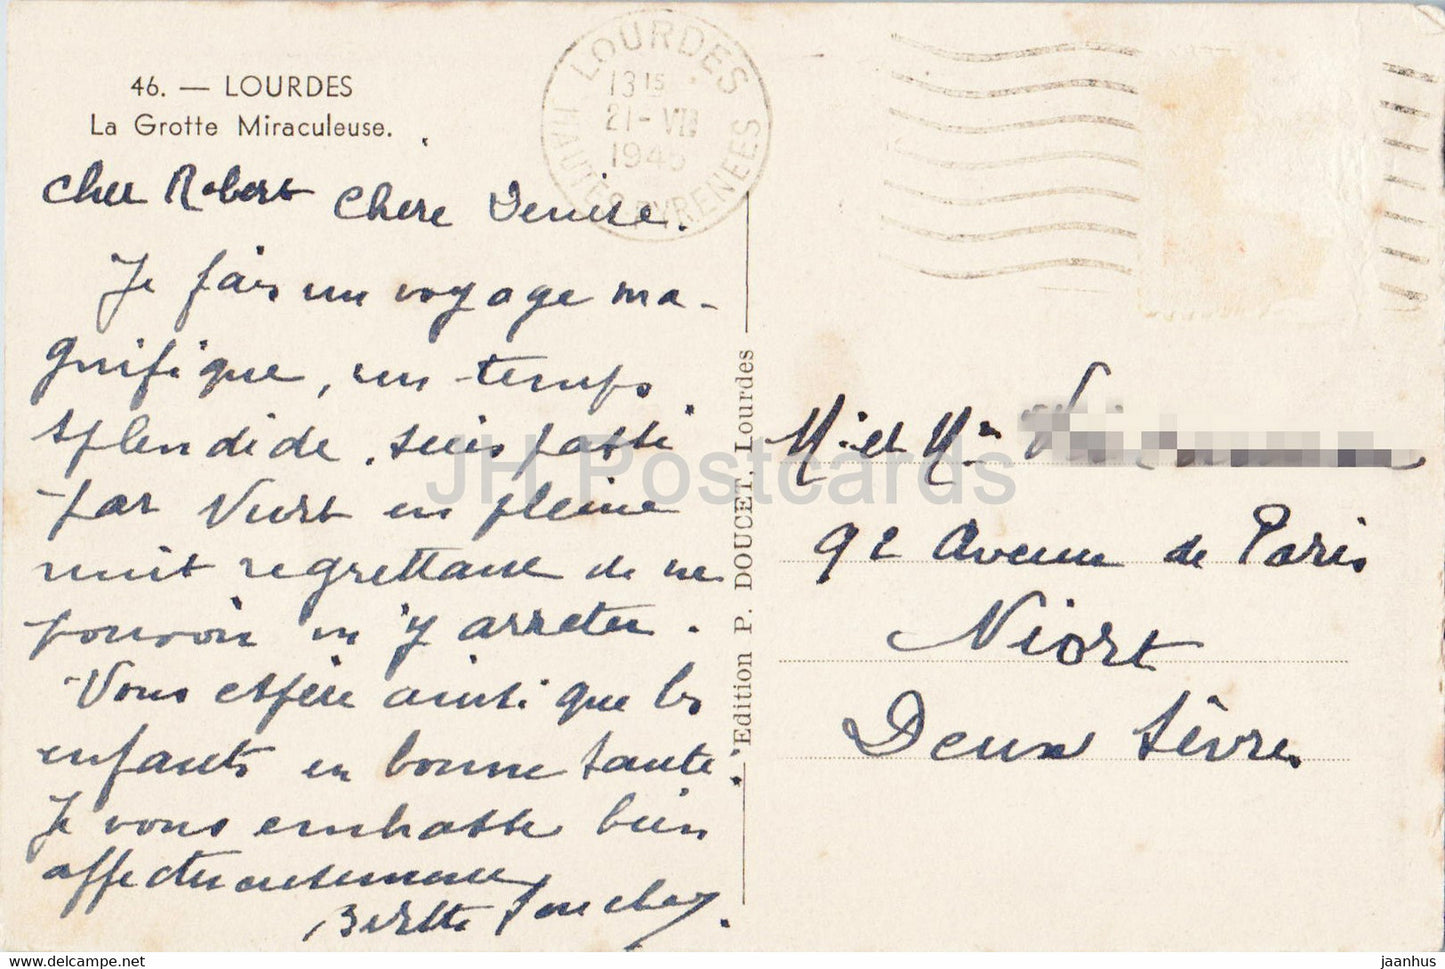 46. — LOURDES
La Grotte Miraculeuse.
LOURDES
13 15
21 - VII
1945
HAUTES PYRENEES
Cher Robert Chere Denise.
Je fais un voyage ma-
gnifique, un temps
splendide. suis passé
par Niort en pleine
nuit regrettant de ne
pouvoir m'y arreter.
Vous espère ainsi que les
enfants en bonne santé.
Je vous embrasse bien
affectueusement
Edition P. DOUCET, Lourdes
Mr et Me
92 Avenue de Paris
Niort
Deux Sèvres
JH Postcards
jaanhus